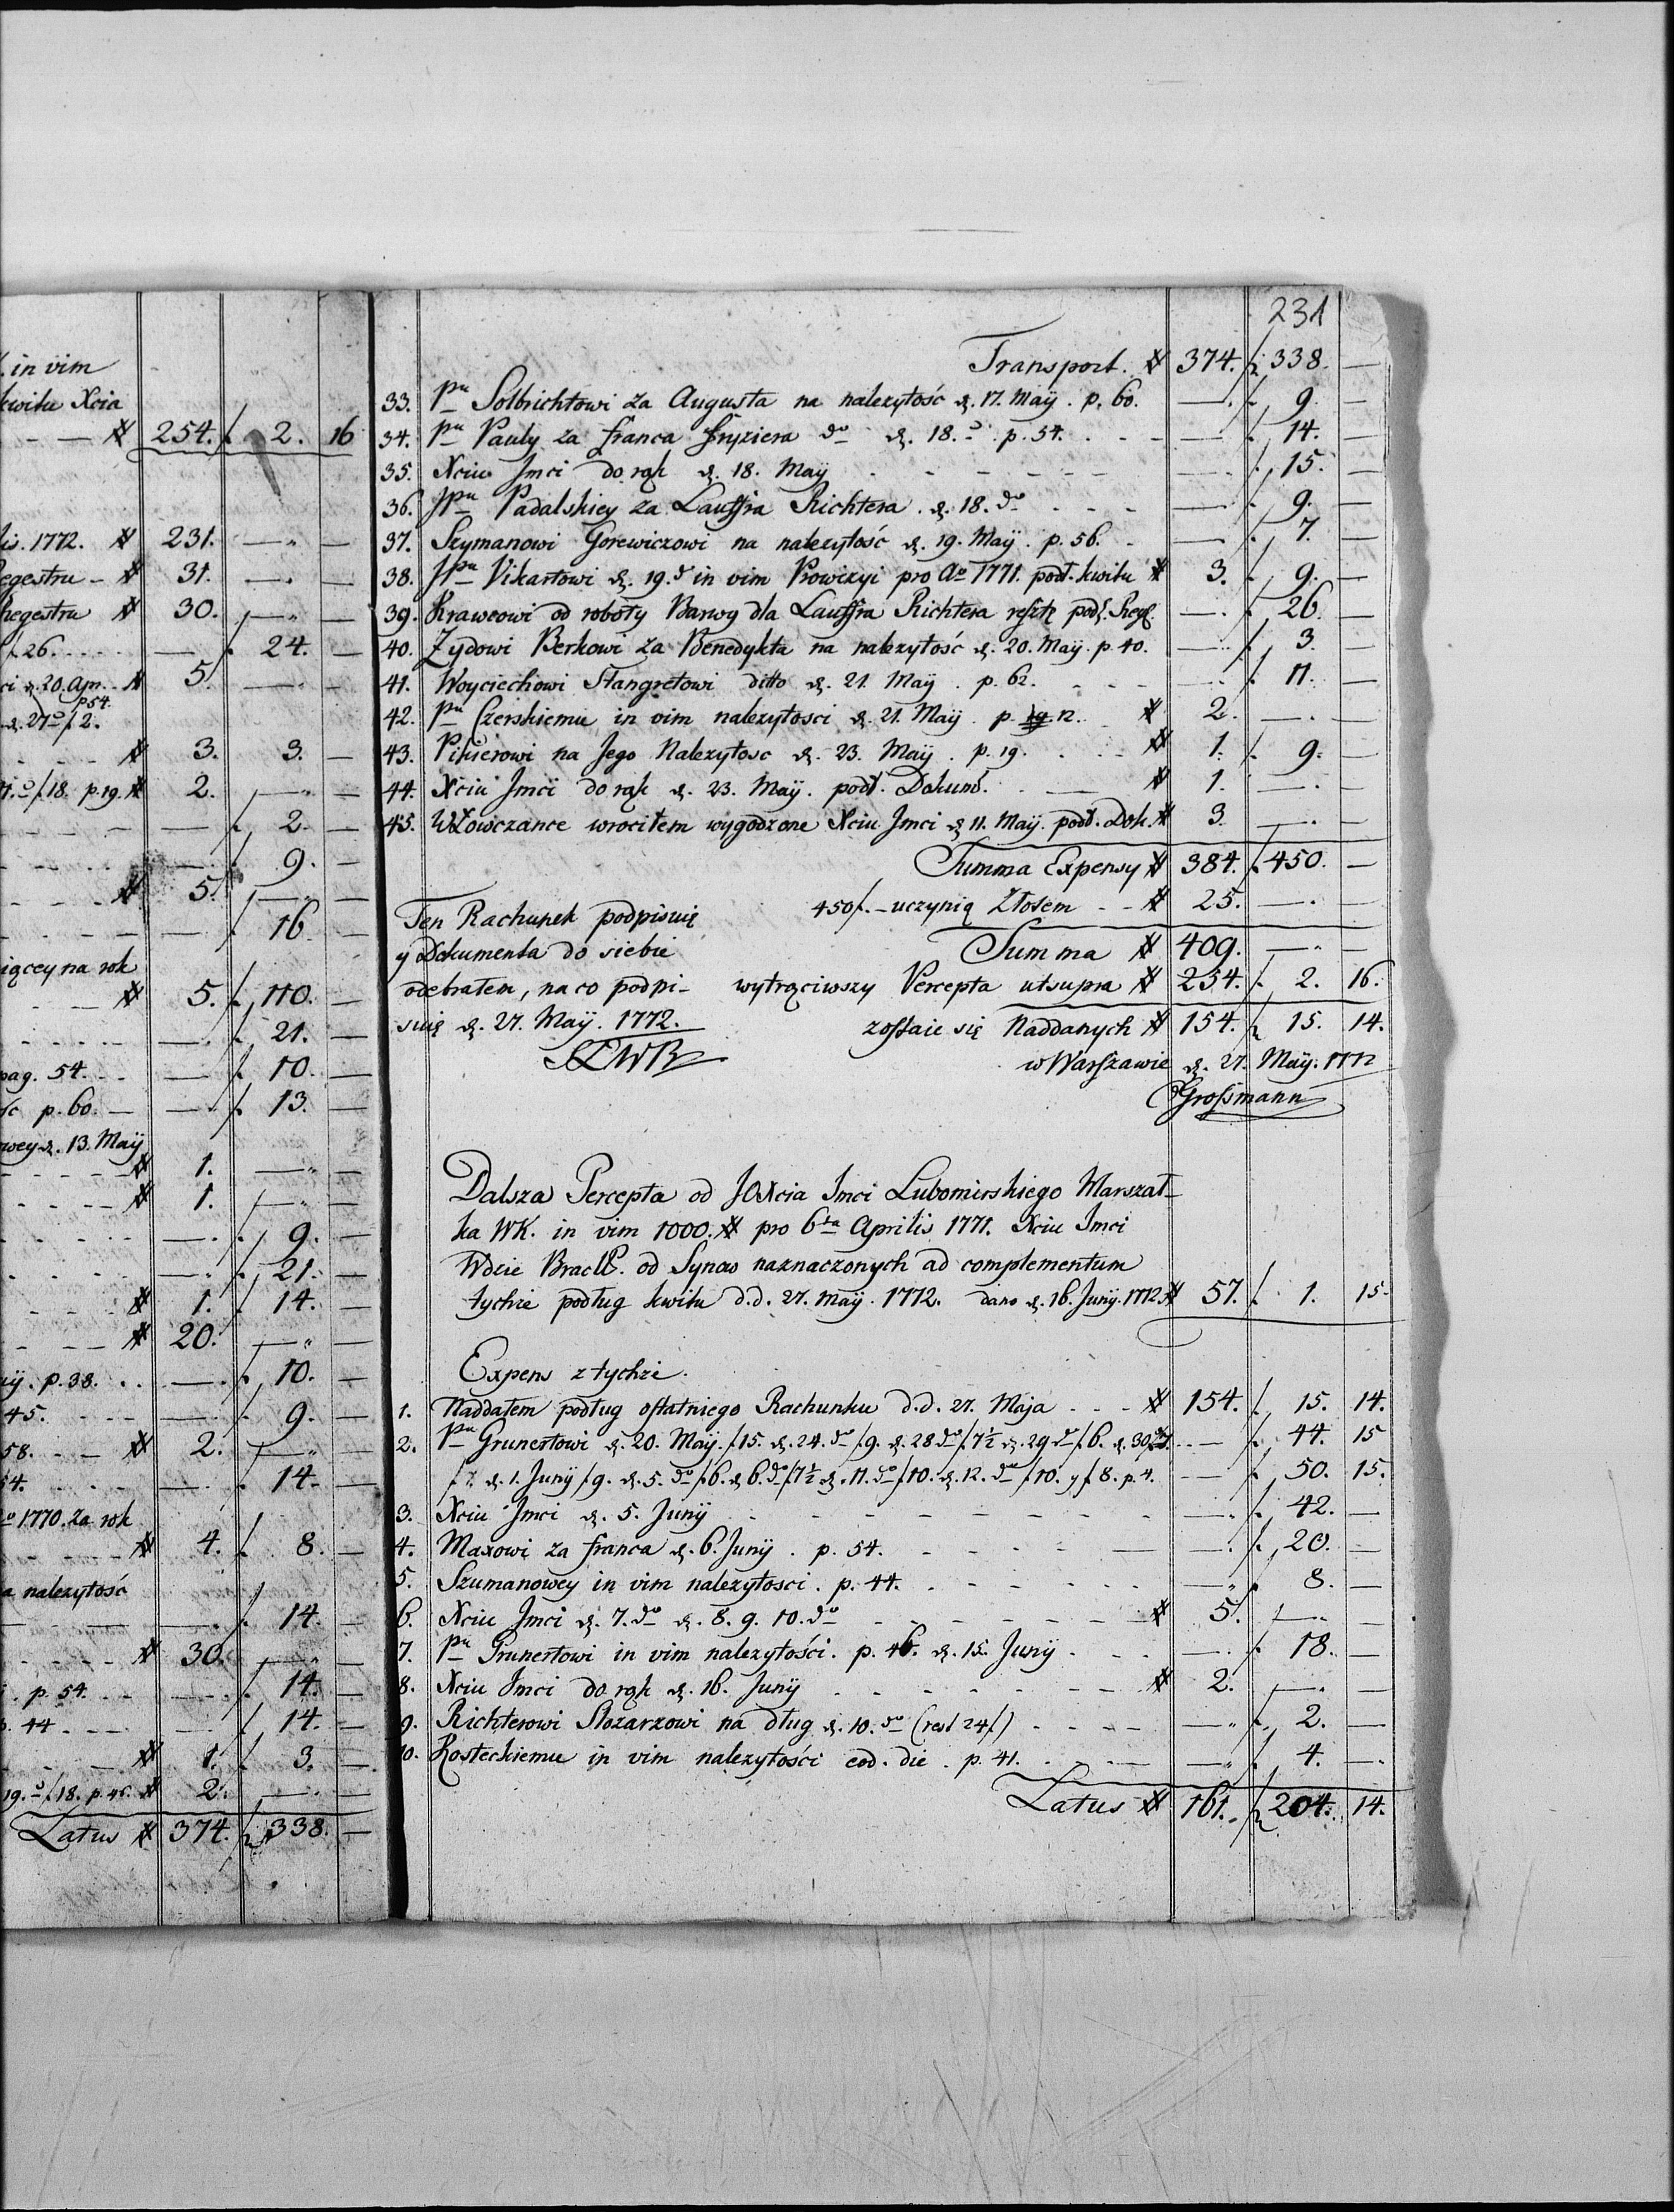 . in vim
kwitu Xcia
# 254. f. 2. 16
lis. 1772. # 231. — —
Regestru - # 31. — —
Regestru # 30. — —
f. 26. — f. 24. —
ci d. 20. Apr. # 5. — —
p 54.
d. 27 f. 2.
# 3. 3. —
f. 18. p. 19. # 2. — —
— f. 2. —
— f. 9. —
# 5. — —
— f. 16 —
iącey na rok
# 5. f. 110. —
— f. 21. —
pag. 54. — f. 10. —
p. 60. — — f. 13. —
d. 13. Maÿ
# 1. — —
# 1. — —
— f. 9. —
— f. 21. —
# 1. f. 14. —
# 20. — —
p. 38. — f. 10. —
45. — f. 9. —
58. — # 2. — —
54. — f. 14. —
1770. za rok
# 4. f. 8. —
a należytość
— f. 14. —
# 30. — —
p. 54. — f. 14. —
44 — f. 14. —
# 1. f. 3. —
19. f. 18. p. 45. # 2. — —
Latus # 374. f 338. —
231
Transport. # 374. f 338. —
33. Pu Solbrichtowi za Augusta na należytość d. 17. Maÿ. p. 60. — f. 9. —
34. Pu Pauly za franca fryziera do d. 18. p. 54. — f. 14. —
35. Xciu Jmci do rąk d. 18. Maÿ — f. 15. —
36. JPu Padalskiey za Lauffra Richtera d. 18. do — f. 9. —
37. Szymanowi Gorewiczowi na należytość d. 19. Maÿ. p. 56. — f. 7. —
38. JPu Vikartowi d. 19. in vim Prowizyi pro Ao 1771. podł. kwitu # 3. f. 9. —
39. Krawcowi od roboty Barwy dla Lauffra Richtera resztę podł. Reg. — f. 26. —
40. Zydowi Berkowi za Benedykta na należytość d. 20. Maÿ. p. 40. — f. 3. —
41. Woyciechowi Stangretowi ditto d. 21. Maÿ. p. 62. — f. 11. —
42. Pu Czerskiemu in vim należytosci d. 21. Maÿ. p. 19 12. # 2. — —
43. Pikierowi na Jego Należytosc d. 23. Maÿ. p. 19. # 1. f. 9. —
44. Xciu Jmci do rąk d. 23. Maÿ. podł. Dokum. # 1. — —
45. WŁowczance wrociłem wygodzone Xciu Jmci d. 11. Maÿ. podł. Dok. # 3. — —
Summa Expensy # 384. f. 450. —
450 f. - uczynią Złotem - # 25. — —
Summa # 409. — —
wytrąciwszy Percepta utsupra # 254. f. 2. 16.
zostaie się Naddanych # 154. f 15. 14.
w Warszawie d. 27. Maÿ. 1772
Grossmann
Ten Rachunek podpisuię
y Dokumenta do siebie
odebrałem, na co podpi-
suię d. 27. Maÿ. 1772.
Dalsza Percepta od JOXcia Jmci Lubomirskiego Marszał-
ka WK. in vim 1000. # pro 6ta Aprilis 1771. Xciu Jmci
Wdzie Bracll. od Synow naznaczonych ad complementum
tychże podług kwitu d.d. 27. Maÿ. 1772. dano d. 16. Junÿ. 1772. # 57. f. 1. 15.
Expens z tychże.
1. Naddałem podług ostatniego Rachunku d.d. 27. Maja # 154. f. 15. 14.
2. Pu Grunertowi d. 20. Maÿ. f. 15. d. 24. do f. 9. d. 28 do f. 7½ d. 29 do f. 6. d. 30. do — f. 44. 15
f. 7. d. 1. Junÿ f. 9. d. 5. do f. 6. d. 6. do f. 7½ d. 11. do f. 10. d. 12. do f. 10. y f. 8. p. 4. — f. 50. 15.
3. Xciu Jmci d. 5. Junÿ — f. 42. —
4. Maxowi za franca d. 6. Junÿ. p. 54. — f. 20. —
5. Szumanowey in vim należytosci. p. 44. — f. 8. —
6. Xciu Jmci d. 7. do d. 8. 9. 10. do # 5. — —
7. Pu Grunertowi in vim należytości. p. 46. d. 15. Junÿ — f. 18. —
8. Xciu Jmci do rąk d. 16. Junÿ # 2. — —
9. Richterowi Slozarzowi na dług d. 10. do (rest 24 f) — f. 2. —
10. Kosteckiemu in vim należytości eod. die. p. 41. — f. 4. —
Latus # 161. f 204. 14.